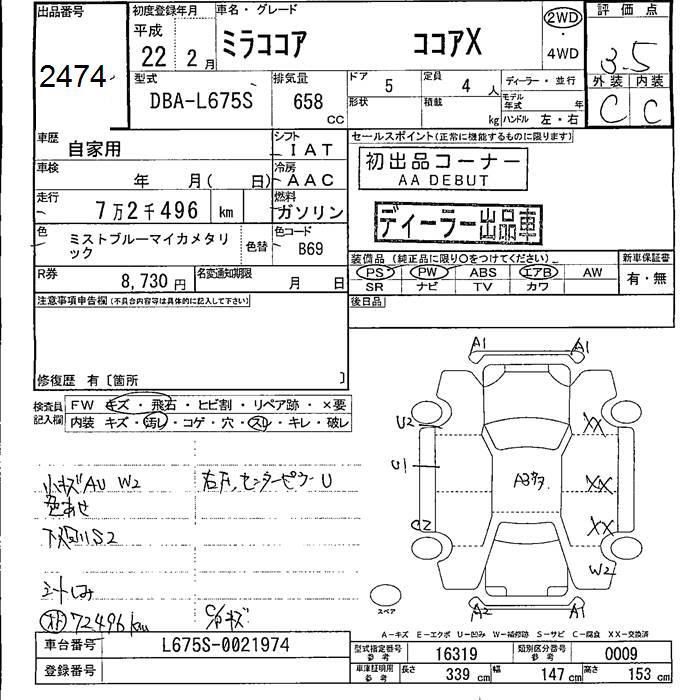 出品番号 初度登録年月 車名・グレード 評価点
平成 22年 2月 ミラココア ココアX 2WD・4WD 3.5
2474
型式 排気量 ドア 5 定員 4人 ディーラー・並行 外装 内装
DBA-L675S 658 CC 形状 積載 kg モデル年式 年 ハンドル 左・右 C C
車歴 自家用 シフト IAT セールスポイント(正常に機能するものに限ります)
車検 年 月( 日) 冷房 AAC 初出品コーナー
AA DEBUT
走行 7万2千496 km 燃料 ガソリン ディーラー出品車
色 ミストブルーマイカメタリック 色替 色コード B69
装備品(純正品に限り○をつけてください) 新車保証書
PS PW ABS エアB AW 有・無
SR ナビ TV カワ
R券 8,730円 名変通知期限 月 日
注意事項申告欄(不具合内容等は具体的に記入して下さい) 後日品
修復歴 有〔箇所 〕
検査員記入欄 FW キズ・飛石・ヒビ割・リペア跡・×要
内装 キズ・汚レ・コゲ・穴・スレ・キレ・破レ
A1 A1
U2 XX
U1 XX
XX
W2
A2 A1
小キズAU W2 右F,センターピラーU
色あせ
S2
シートしみ
72496km キズ
スペア
A-キズ E-エクボ U-凹み W-補修跡 S-サビ C-腐食 XX-交換済
車台番号 L675S-0021974 型式指定番号 参考 16319 類別区分番号 参考 0009
登録番号 車庫証明用 参考 長さ 339cm 幅 147cm 高さ 153cm